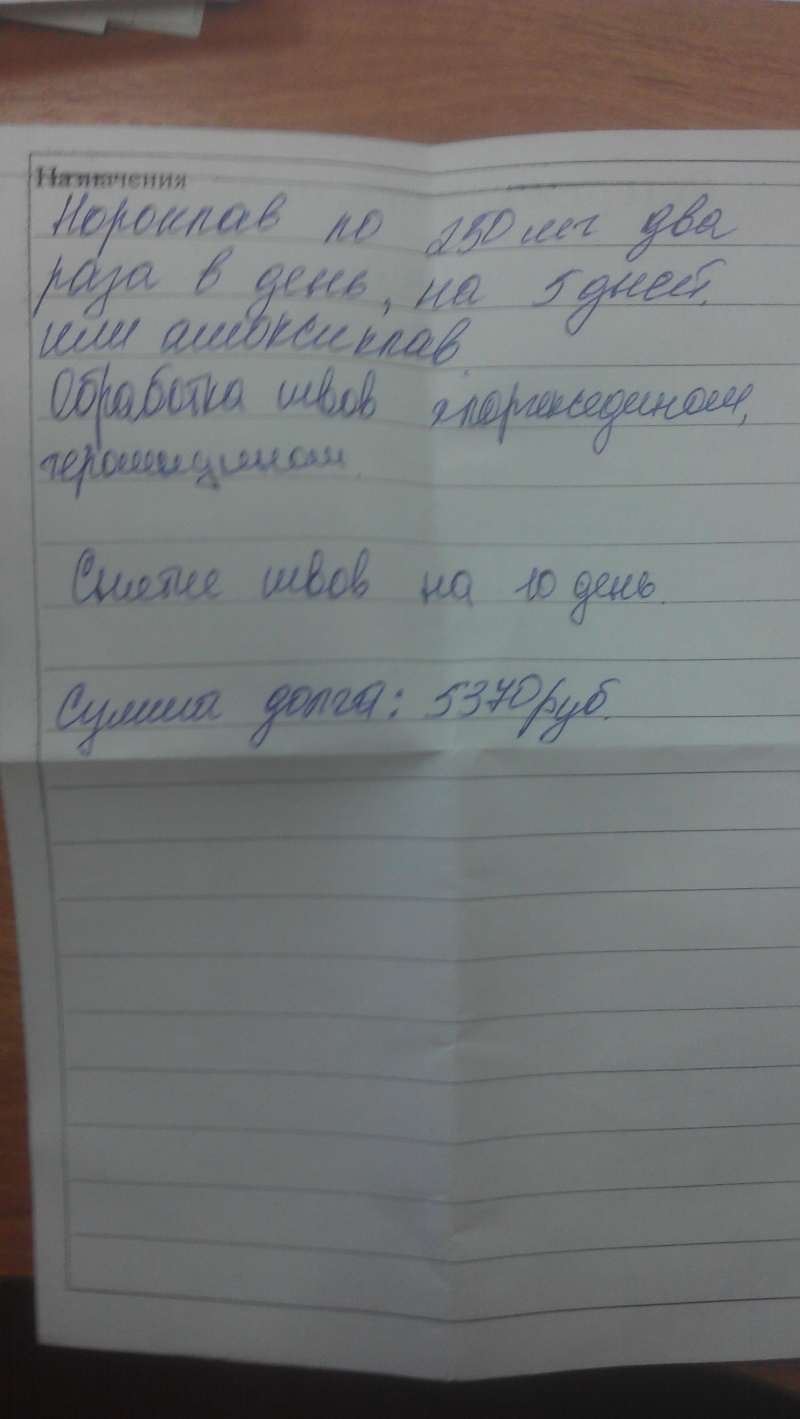 Назначения
Нороклав по 250 мг два
раза в день, на 5 дней.
или амоксиклав
Обработка швов хлоргекседином,
терамицином.
Снятие швов на 10 день.
Сумма долга: 5370 руб.